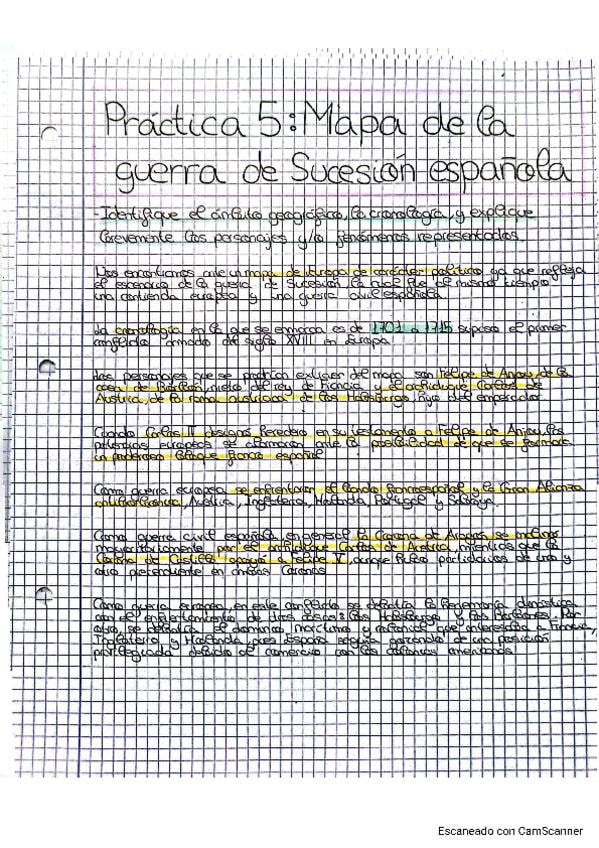 Práctica 5: Mapa de la
guerra de Sucesión española
- Identifique el ámbito geográfico, la cronología, y explique
brevemente los personajes y/o fenómenos representados.
Nos encontramos ante un mapa de Europa de carácter político ya que refleja
el escenario de la guerra de Sucesión, la cual fue al mismo tiempo
una contienda europea y una guerra civil española.
La cronología en la que se enmarca es de 1701 a 1715 supuso el primer
conflicto armado del siglo XVIII en Europa.
Los personajes que se podrían extraer del mapa son Felipe de Anjou, de la
casa de Borbón, nieto del rey de Francia y el archiduque Carlos de
Austria, de la rama austriaca de los Habsburgo, hijo del emperador.
Cuando Carlos II designa heredero en su testamento a Felipe de Anjou, las
potencias europeas se alarmaron ante la posibilidad de que se formara
un poderoso bloque franco español
Como guerra europea se enfrentaron el bando francoespañol y la Gran Alianza
Austria, Inglaterra, Holanda, Portugal y Saboya.
Como guerra civil española, en general la Corona de Aragón se inclinó
mayoritariamente por el archiduque Carlos de Austria, mientras que la
Corona de Castilla apoyó a Felipe V, aunque hubo partidarios de uno y
otro pretendiente en ambas Coronas
Como guerra europea, en este conflicto se debatía la hegemonía dinástica
con el enfrentamiento de dos casas: los Habsburgo y los Borbones. Por
otro se debatía el dominio marítimo y colonial que interesaba a Francia,
Inglaterra y Holanda pues España seguía gozando de una posición
privilegiada debido al comercio con las colonias americanas
Escaneado con CamScanner